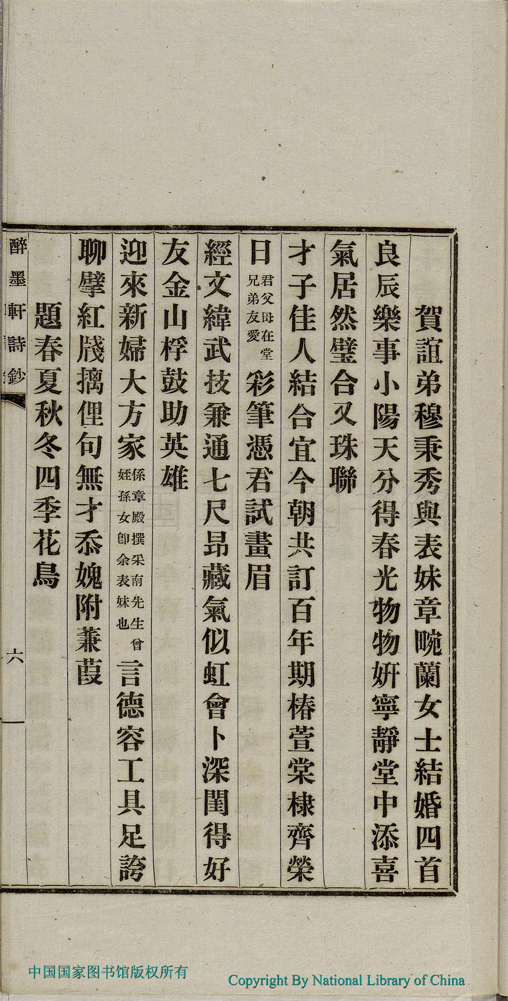 賀誼弟穆秉秀與表妹章畹蘭女士結婚四首
良辰樂事小陽天分得春光物物妍寧靜堂中添喜
氣居然璧合又珠聯
才子佳人結合宜今朝共訂百年期椿萱棠棣齊榮
日君父母在堂兄弟友愛彩筆憑君試畫眉
經文緯武技兼通七尺昂藏氣似虹會卜深閨得好
友金山桴鼓助英雄
迎來新婦大方家係章殿撰采南先生曾姪孫女卽余表妹也言德容工具足誇
聊擘紅牋摛俚句無才忝媿附蒹葭
題春夏秋冬四季花鳥
醉墨軒詩鈔
六
中国国家图书馆版权所有
Copyright By National Library of China